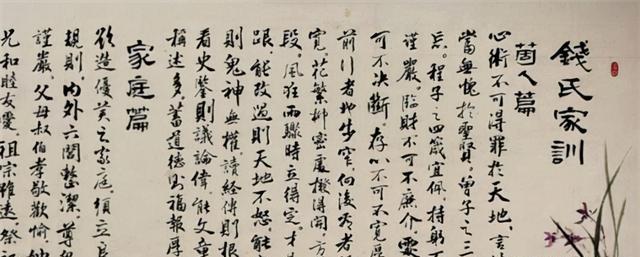 錢氏家訓
箇人篇
心術不可得罪於天地，言
當無愧於聖賢。曾子之三
忘。程子之四箴宜佩。持躬不
謹嚴。臨財不可不廉介。處
可不決斷，存心不可不寬厚
前行者地步窄，向後看者
寬。花繁柳密處撥得開，方
段。風狂雨驟時立得定，才
跟。能改過則天地不怒，能
則鬼神無權。讀經傳則根
看史鑒則議論偉。能文章
稱述多。蓄道德則福報厚
家庭篇
欲造優美之家庭，須立良
規則。內外六閭整潔，尊卑
謹嚴。父母叔伯孝敬歡愉，妯
兄和睦友愛。祖宗雖遠，祭祀